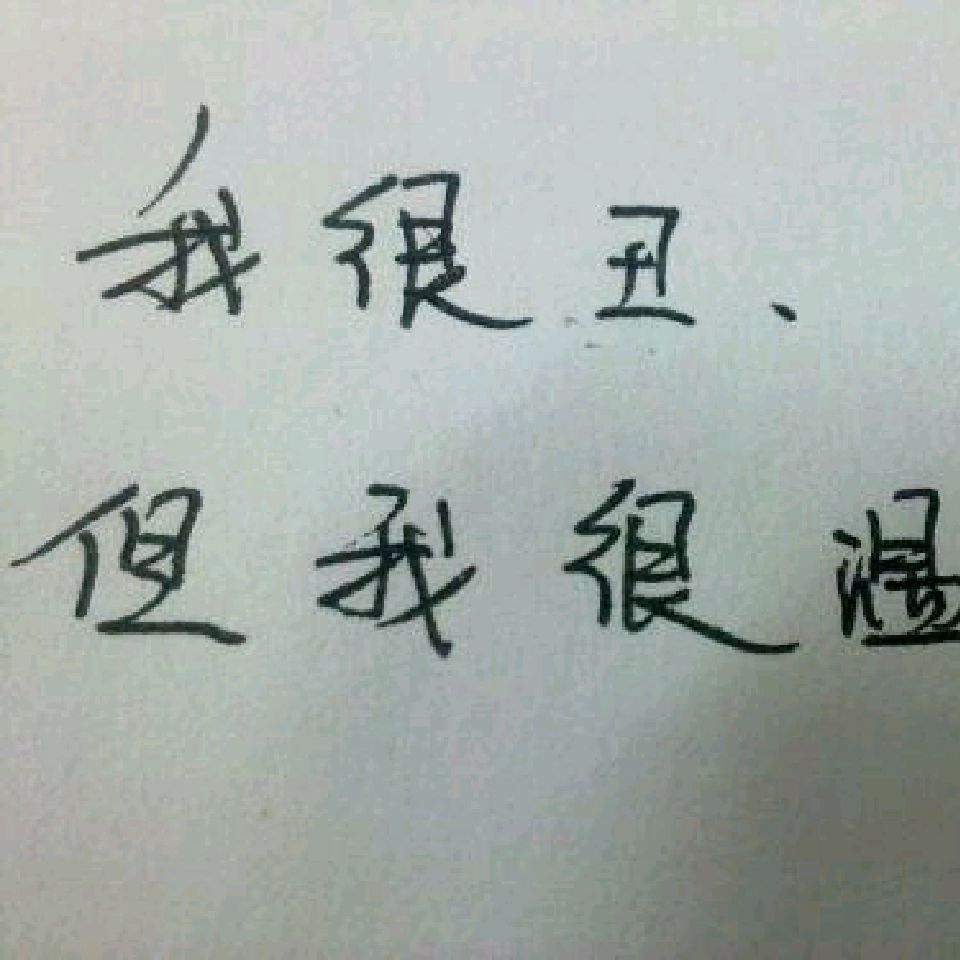 我很丑、
但我很温